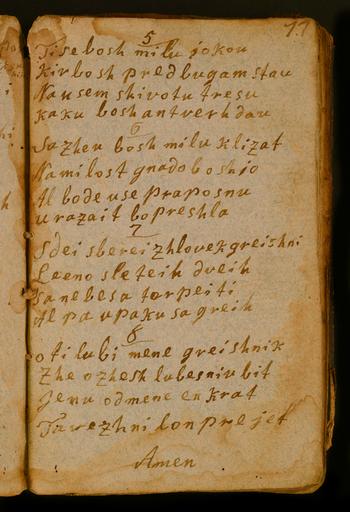 77
5
Ti se bosh milu jokou
Kir bosh pred bugam stau
Na usem shivotu tresu
kaku bosh antverh dau
6
Sa zheu bosh milu klizat
Na milost gnado boshjo
Al bode use praposnu
urazait bo preshla
7
Sdei sberei zhlovek greishni
Leeno sle teih dveih
Ja nebesa torpeiti
Al pa upaku sa greih
8
oti lubi mene greishnik
Zhe ozhesh lubesniu bit
Jenu od mene enkrat
Ta vezhni lon prejet
Amen